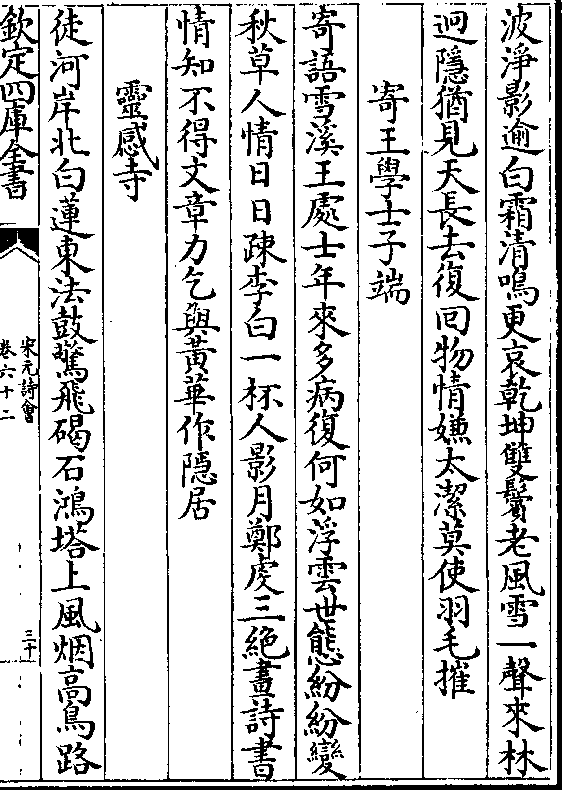 波淨影逾白霜清鳴更哀乾坤雙鬢老風雪一聲來林
迥隱猶見天長去復回物情嫌太潔莫使羽毛摧
寄王學士子端
寄語雪溪王處士年來多病復何如浮雲世態紛紛變
秋草人情日日疎李白一杯人影月鄭虔三絶畫詩書
情知不得文章力乞與黃華作隱居
靈感寺
徒河岸北白蓮東法鼓驚飛碣石鴻塔上風烟高鳥路
欽定四庫全書
宋元詩會
卷六十二
三十